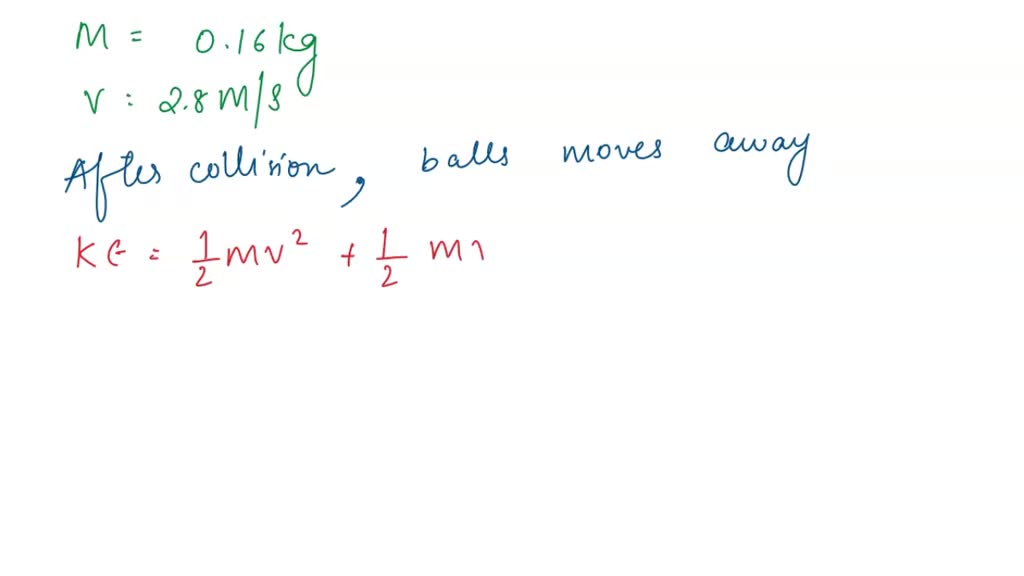 M = 0.16 kg
v : 2.8 M/s
After collision, balls moves away
KE = 1/2 mv² + 1/2 m